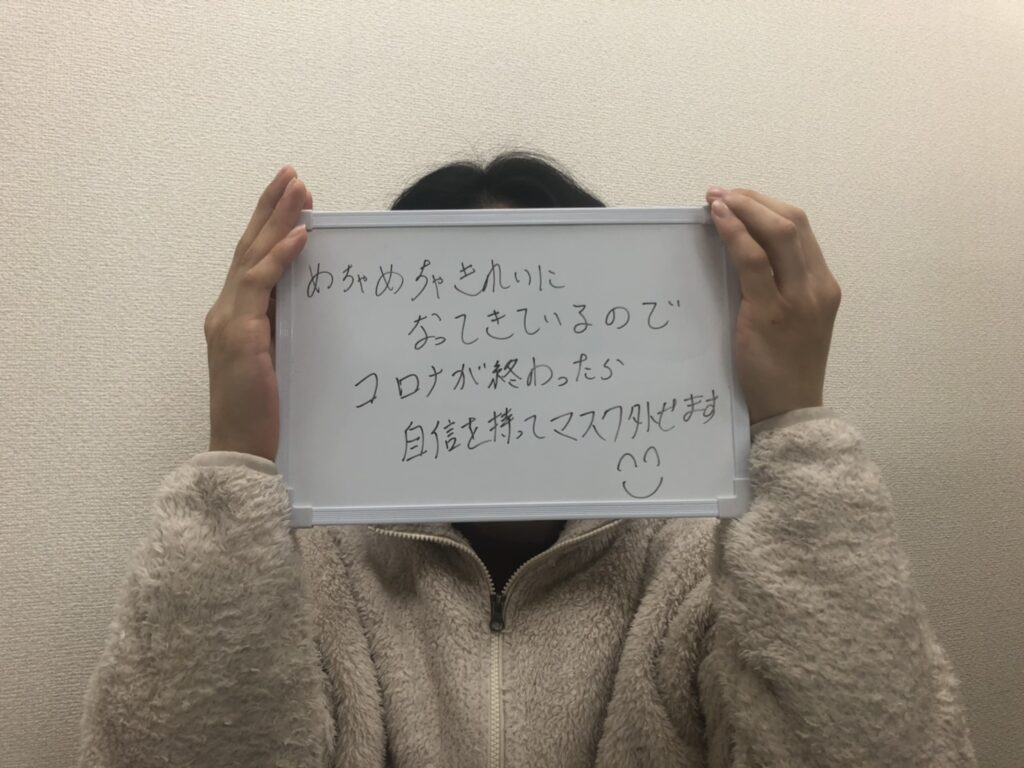 めちゃめちゃきれいに
なってきているので
コロナが終わったら
自信を持ってマスク外せます